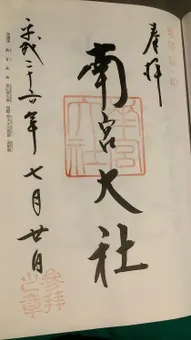 奉拝
南宮大社
平成二十六年七月廿日
南宮大社
参拝之章